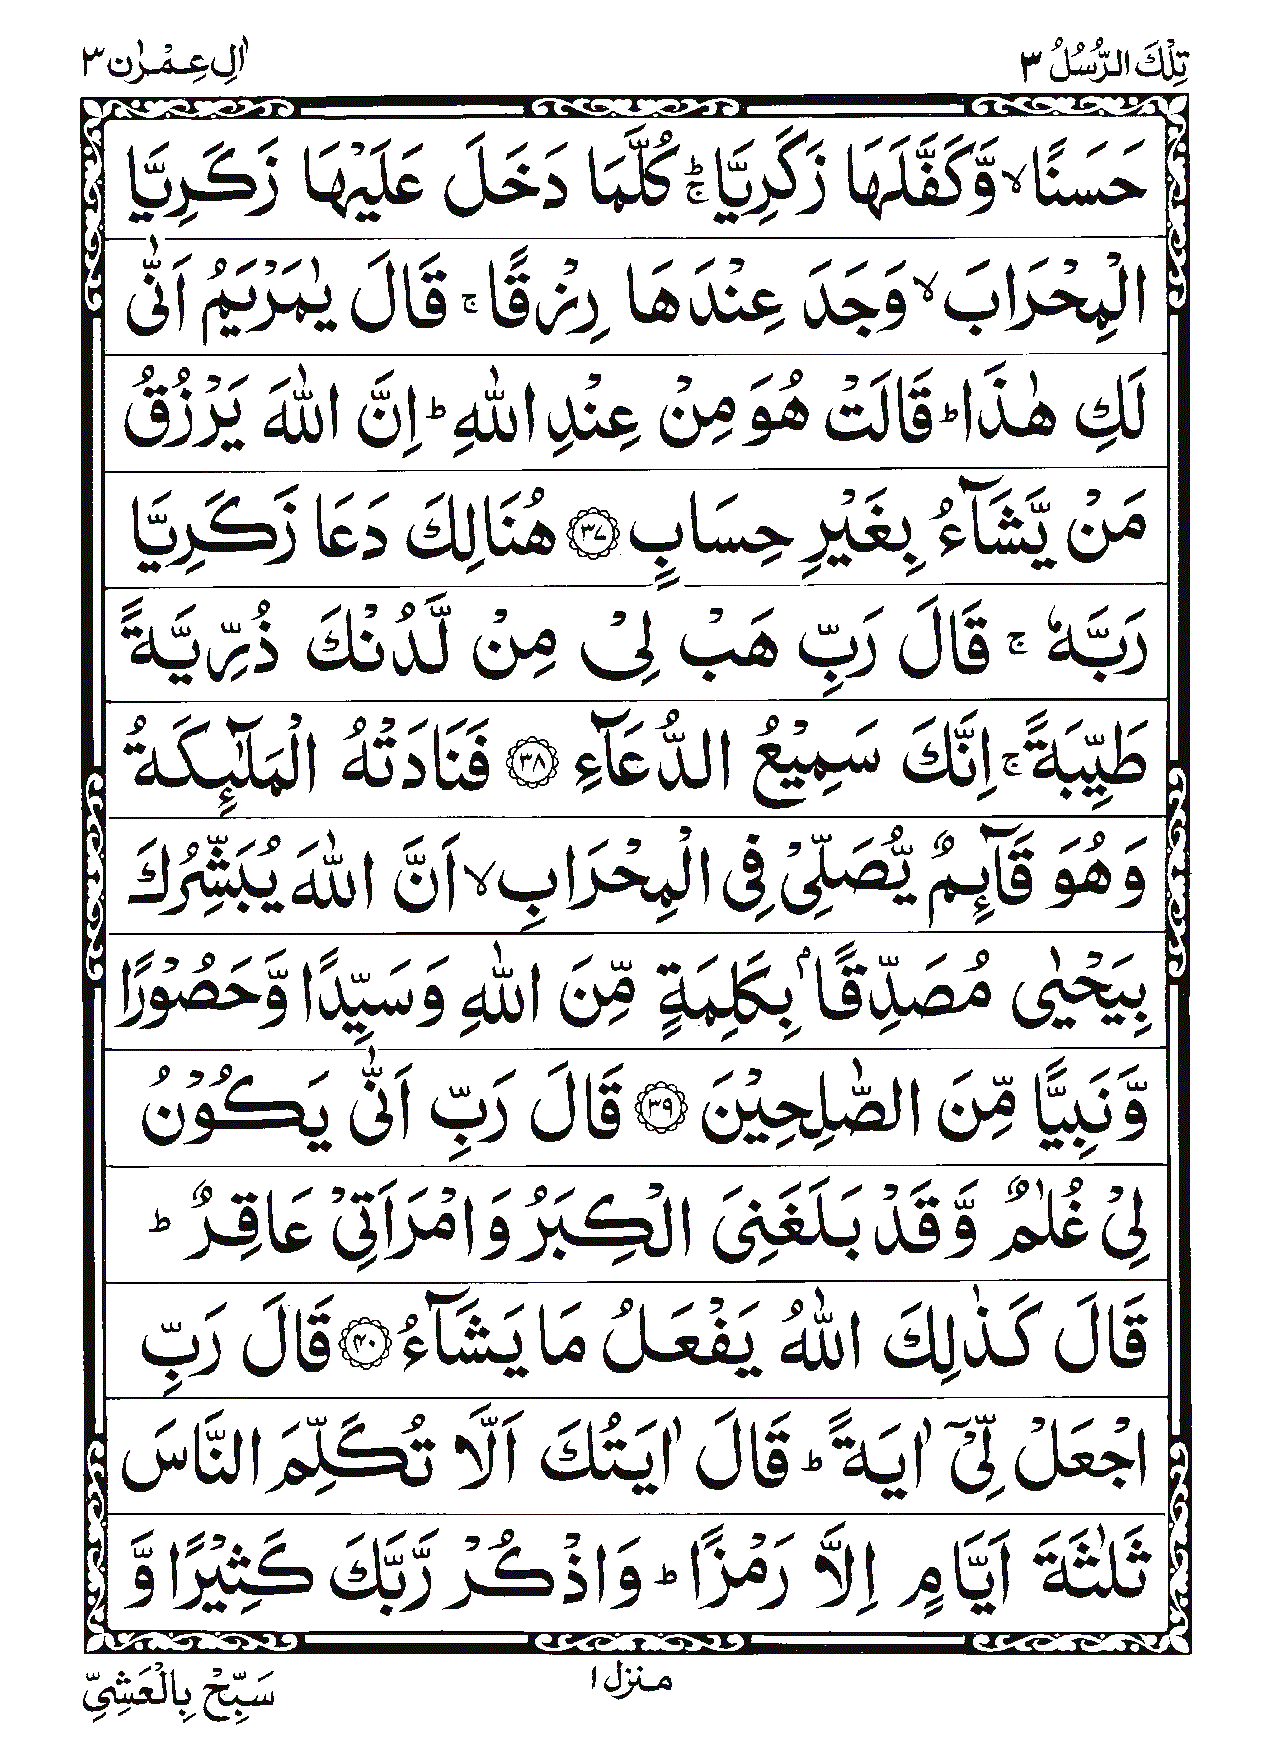 تِلْكَ الرُّسُلُ ٣
اٰلِ عِمْرٰن ٣
حَسَنًا ۙ وَّكَفَّلَهَا زَكَرِيَّا ۚؕ كُلَّمَا دَخَلَ عَلَيْهَا زَكَرِيَّا
الْمِحْرَابَ ۙ وَجَدَ عِنْدَهَا رِزْقًا ۚ قَالَ يٰمَرْيَمُ اَنّٰى
لَكِ هٰذَا ؕ قَالَتْ هُوَ مِنْ عِنْدِ اللّٰهِ ؕ اِنَّ اللّٰهَ يَرْزُقُ
مَنْ يَّشَآءُ بِغَيْرِ حِسَابٍ ﴿٣٧﴾ هُنَالِكَ دَعَا زَكَرِيَّا
رَبَّهٗ ۚ قَالَ رَبِّ هَبْ لِىْ مِنْ لَّدُنْكَ ذُرِّيَّةً
طَيِّبَةً ۚ اِنَّكَ سَمِيْعُ الدُّعَآءِ ﴿٣٨﴾ فَنَادَتْهُ الْمَلٰٓئِكَةُ
وَهُوَ قَآئِمٌ يُّصَلِّىْ فِى الْمِحْرَابِ ۙ اَنَّ اللّٰهَ يُبَشِّرُكَ
بِيَحْيٰى مُصَدِّقًۢا بِكَلِمَةٍ مِّنَ اللّٰهِ وَسَيِّدًا وَّحَصُوْرًا
وَّنَبِيًّا مِّنَ الصّٰلِحِيْنَ ﴿٣٩﴾ قَالَ رَبِّ اَنّٰى يَكُوْنُ
لِىْ غُلٰمٌ وَّقَدْ بَلَغَنِىَ الْكِبَرُ وَامْرَاَتِىْ عَاقِرٌ ؕ
قَالَ كَذٰلِكَ اللّٰهُ يَفْعَلُ مَا يَشَآءُ ﴿٤٠﴾ قَالَ رَبِّ
اجْعَلْ لِّىْۤ اٰيَةً ؕ قَالَ اٰيَتُكَ اَلَّا تُكَلِّمَ النَّاسَ
ثَلٰثَةَ اَيَّامٍ اِلَّا رَمْزًا ؕ وَاذْكُرْ رَّبَّكَ كَثِيْرًا وَّ
منزل ١
سَبِّحْ بِالْعَشِىِّ